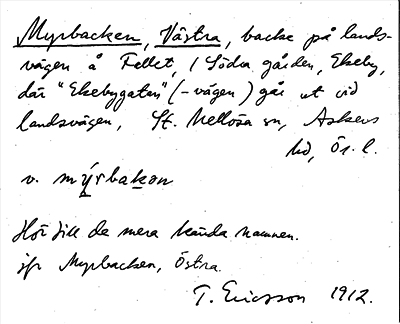 Myrbacken, Västra, backe på lands-
vägen å Fellet, / Södra gården, Ekeby,
där "Ekebygatan" (-vägen) går ut vid
landsvägen, St. Mellösa sn, Askers
hd, Ör. l.
v. mýrbakan
Hör till de mera kända namnen.
jfr Myrbacken, Östra.
T. Ericsson 1912.